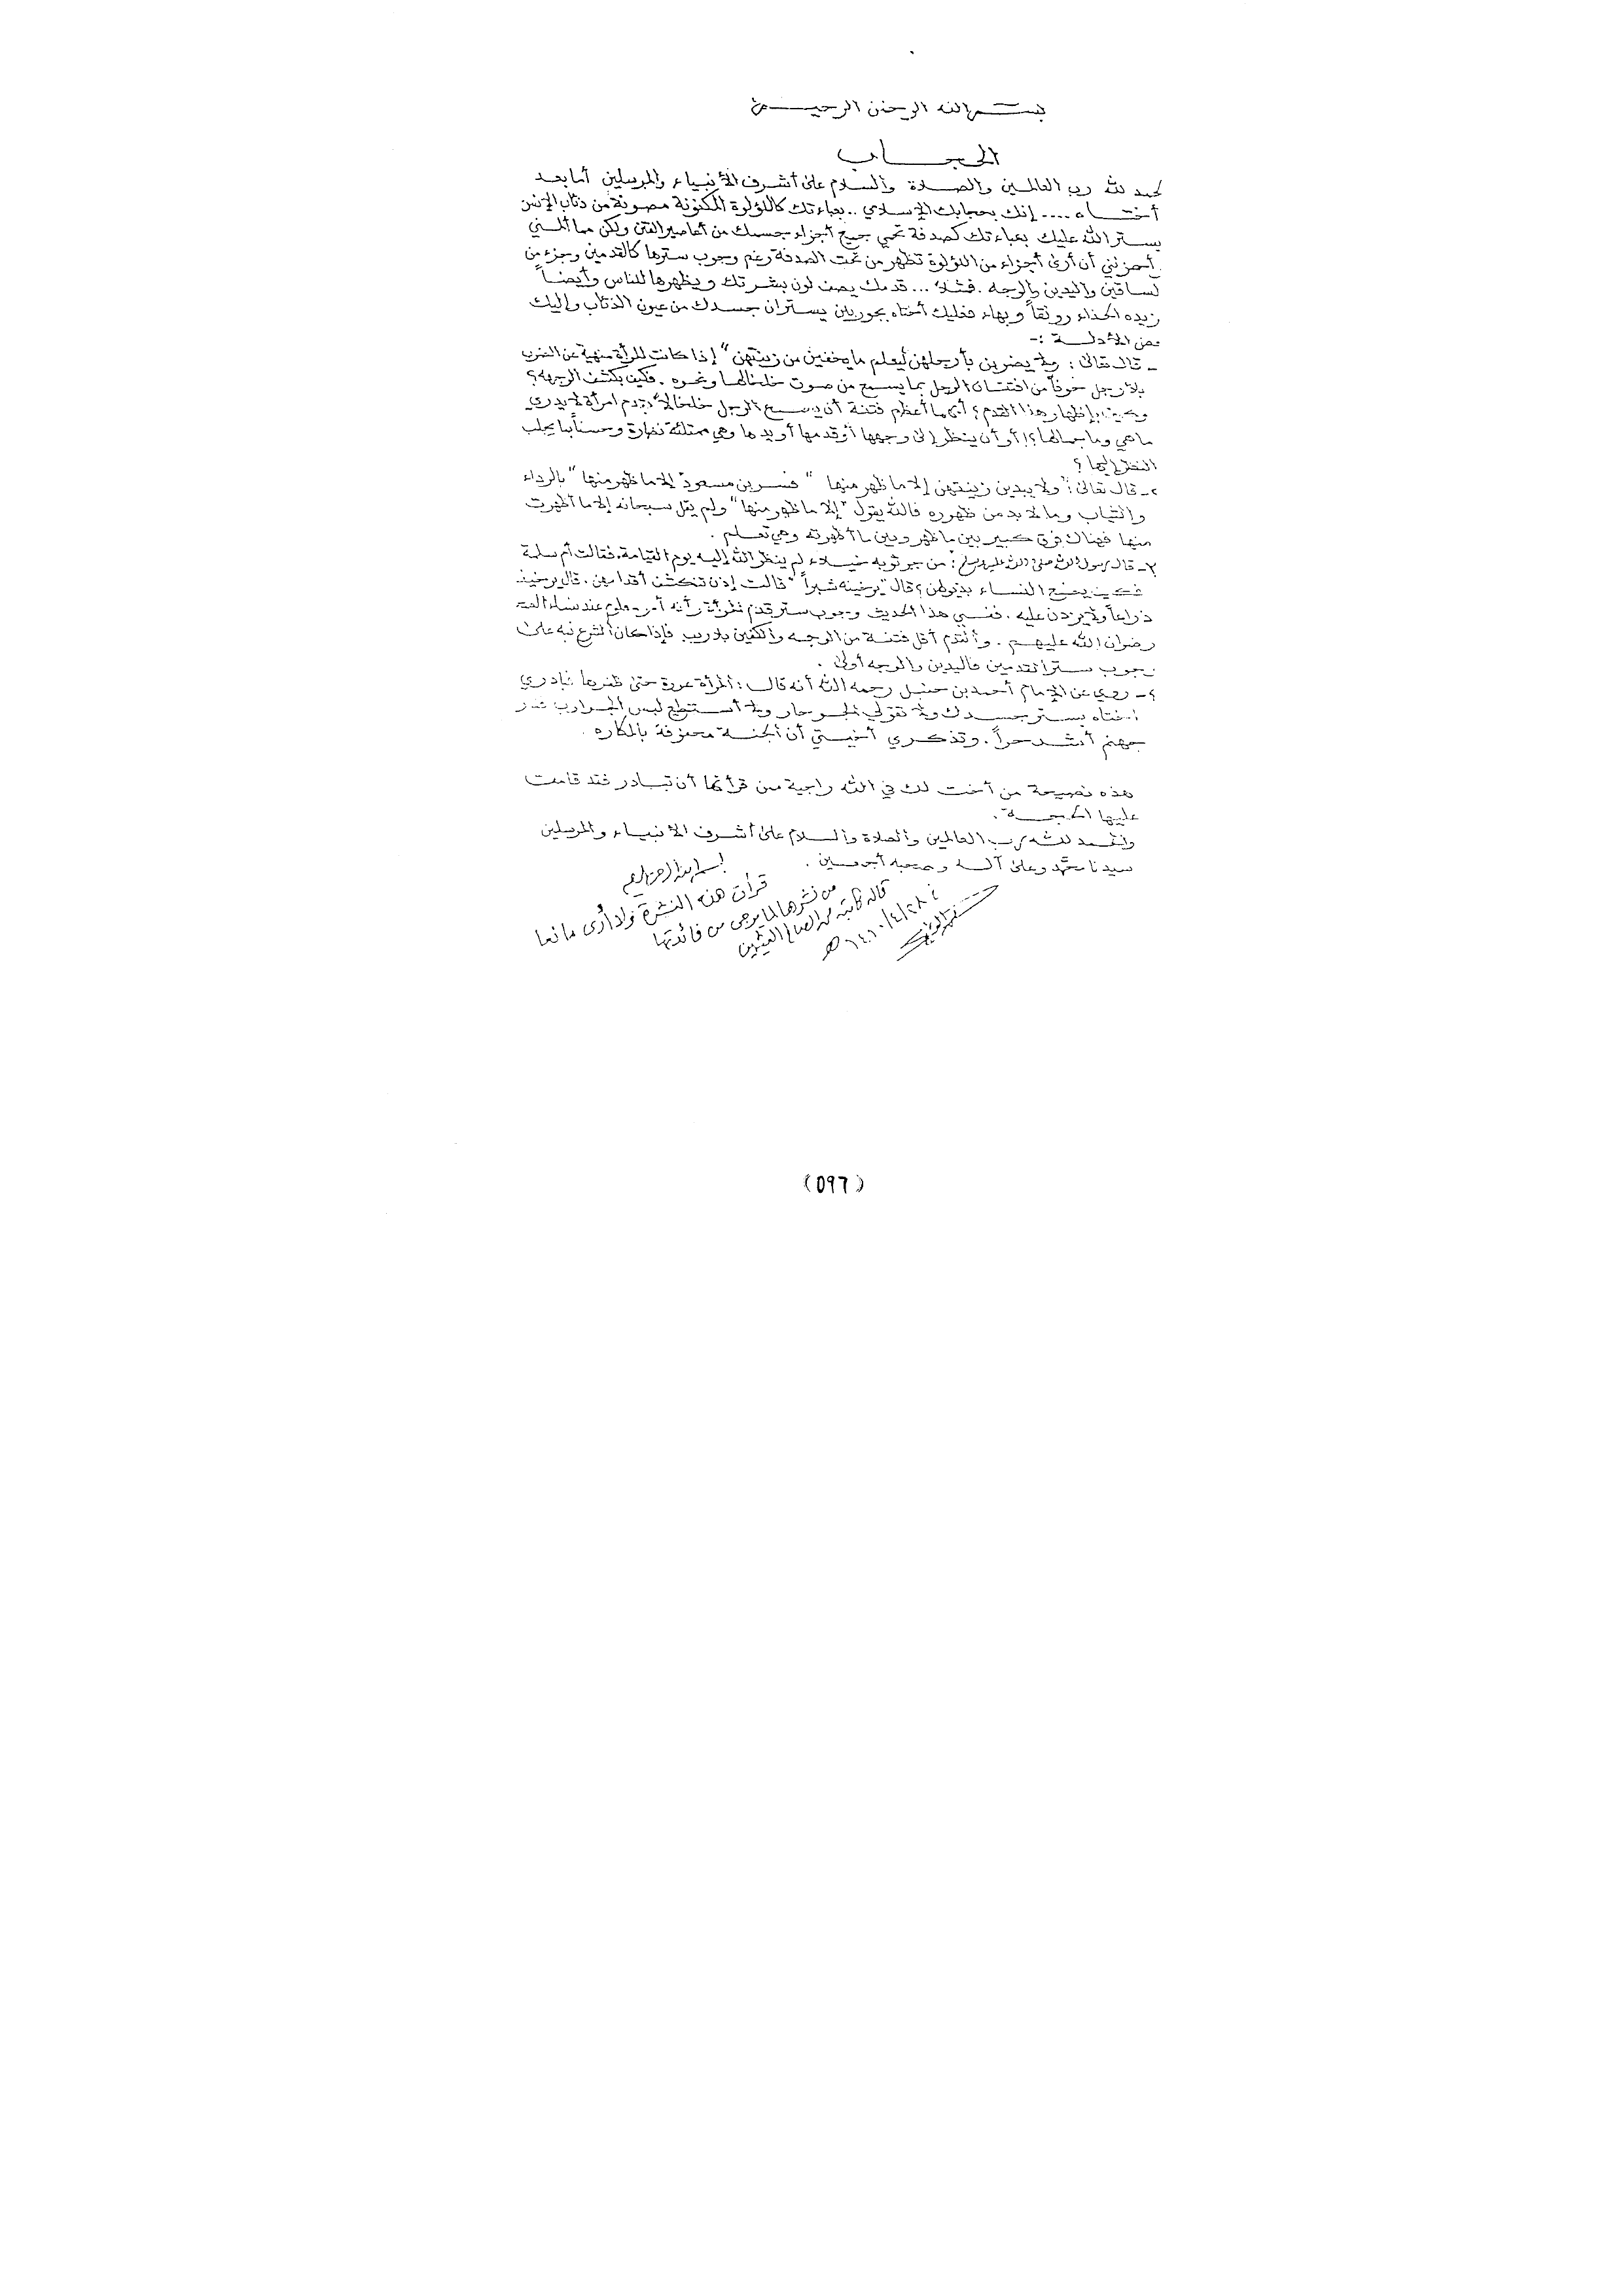 بسم الله الرحمن الرحيم
الحجاب
لحمد لله رب العالمين والصلاة والسلام على أشرف الأنبياء والمرسلين أما بعد
أختاه .... إنك بحجابك الإسلامي .. بعباءتك كاللؤلؤة المكنونة مصونة من ذئاب الإنس
يستر الله عليك بعباءتك كصدفة تحمي جميع أجزاء جسمك من أعاصير الفتن ولكن مما ألمني
أحزنني أن أرى أجزاء من اللؤلؤة تظهر من تحت الصدفة رغم وجوب سترها كالقدمين وجزء من
لساقين واليدين والوجه . فمثلاً ... قدمك يصف لون بشرتك ويظهرها للناس وأيضاً
زيده الحذاء رونقاً وبهاء فعليك أختاه بجوربين يستران جسدك من عيون الذئاب وإليك
بعض الأدلة :-
- قال تعالى : ولا يضربن بأرجلهن ليعلم ما يخفين من زينتهن " إذا كانت المرأة منهية عن الضرب
بالأرجل خوفاً من افتتان الرجل بما يسمع من صوت خلخالها ونحوه . فكيف بكشف الوجه ؟
وكيف بإظهار هذا القدم ؟ أيهما أعظم فتنة أن يسمع الرجل خلخالاً بقدم امرأة لا يدري
ما هي وما جمالها ؟! أو أن ينظر إلى وجهها أو قدمها أو يدها وهي ممتلئة نضارة وحسناً بما يجلب
النظر إليها ؟
٢- قال تعالى : " ولا يبدين زينتهن إلا ما ظهر منها " فسر بن مسعود " إلا ما ظهر منها " بالرداء
والثياب وما لا بد من ظهوره فالله يقول " إلا ما ظهر منها " ولم يقل سبحانه إلا ما أظهرت
منها فهناك فرق كبير بين ما ظهر وبين ما أظهرته وهي تعلم .
٣- قال رسول الله صلى الله عليه وسلم : من جر ثوبه خيلاء لم ينظر الله إليه يوم القيامة . فقالت أم سلمة
فكيف يصنع النساء بذيولهن ؟ قال " يرخينه شبراً " قالت إذن تنكشف أقدامهن . قال يرخينه
ذراعاً ولا يزدن عليه . ففي هذا الحديث وجوب ستر قدم المرأة وأنه أمر معلوم عند نساء الصحابة
رضوان الله عليهم . والقدم أقل فتنة من الوجه والكفين بلا ريب فإذا كان الشرع نبه على
وجوب ستر القدمين فاليدين والوجه أولى .
٤- روي عن الإمام أحمد بن حنبل رحمه الله أنه قال : المرأة عورة حتى ظفرها فبادري
أختاه بستر جسدك ولا تقولي الجو حار ولا أستطيع لبس الجوارب فنار
جهنم أشد حراً . وتذكري أخيتي أن الجنة محفوفة بالمكاره .
هذه نصيحة من أخت لك في الله راجية من قرأتها أن تبادر فقد قامت
عليها الحجة .
والحمد لله رب العالمين والصلاة والسلام على أشرف الأنبياء والمرسلين
سيدنا محمد وعلى آله وصحبه أجمعين .
بسم الله الرحمن الرحيم
قرأت هذه النشرة ولا أرى مانعا
من نشرها لما يرجى من فائدتها
قاله كاتبه محمد الصالح العثيمين
في ٢٨/٤/١٤١٠ هـ
(٥٩٦)